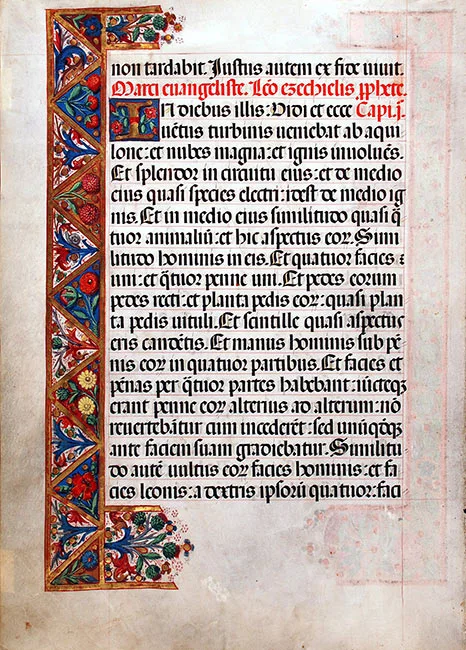 non tardabit. Iustus autem ex fide viuit.
Marci euangeliste. Lcō ezechielis ꝓphete.
IN diebus illis: Vidi et ecce Capi. j.
uētus turbinis ueniebat ab aqui
lone: et nubes magna: et ignis inuoluēs.
Et splendor in circuitu eius: et de medio
eius quasi species electri: idest de medio ig
nis. Et in medio eius similitudo quasi q̄
tuor animaliū: et hic aspectus eoꝝ. Simi
litudo hominis in eis. Et quatuor facies
uni: et q̄tuor penne uni. Et pedes eorum
pedes recti: et planta pedis eoꝝ: quasi plan
ta pedis uituli. Et scintille quasi aspectus
eris candētis. Et manus hominis sub pē
nis eoꝝ in quatuor partibus. Et facies et
pēnas per q̄tuor partes habebant: iūcteqꝫ
erant penne eoꝝ alterius ad alterum: nō
reuertebātur cum incederēt: sed unūqdqꝫ
ante faciem suam gradiebatur. Similitu
do autē uultus eoꝝ facies hominis: et fa
cies leonis: a dextris ipsorū quatuor: faci